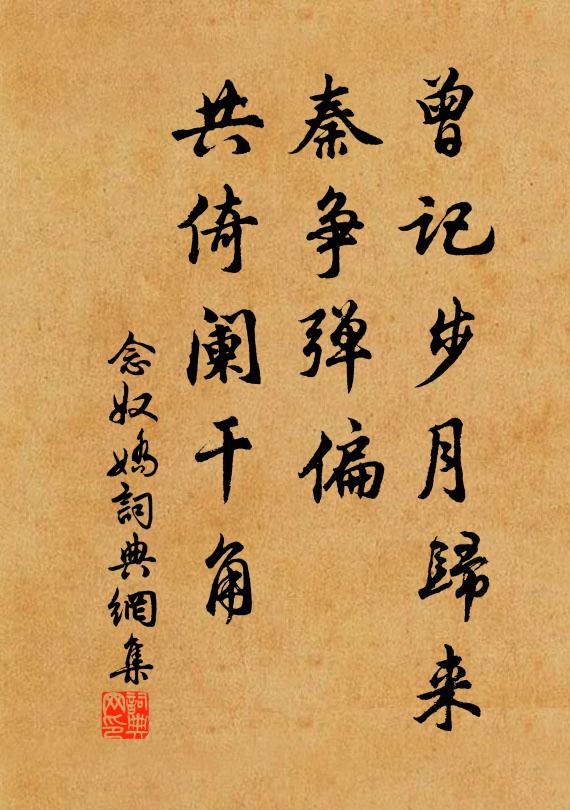 曾记步月歸来
秦争弹偏
共倚阑干角
念奴嬌詞典網集
詞典网印